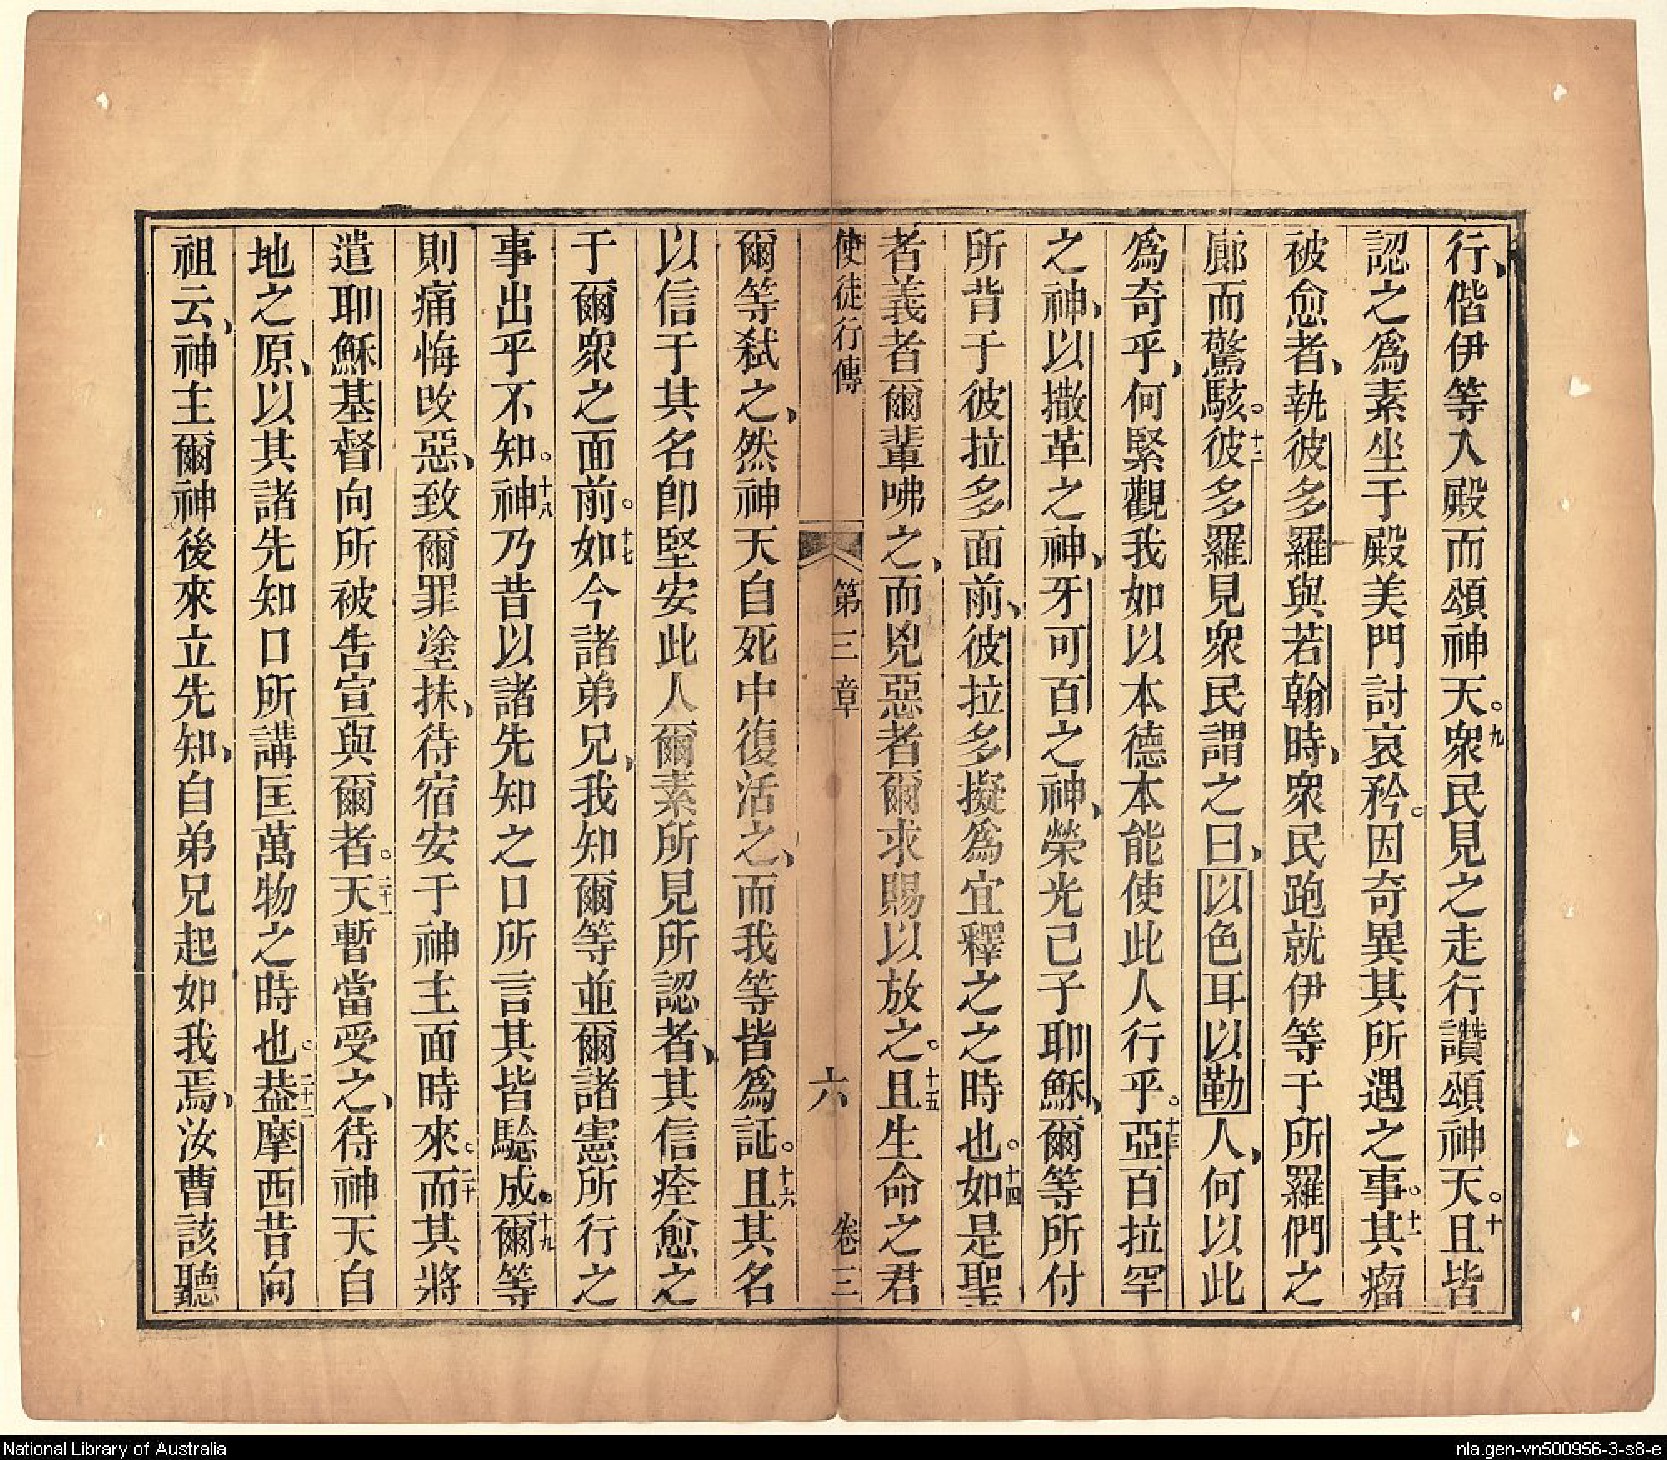 行、偕伊等入殿而頌神天。九衆民見之走行讚頌神天。十且皆
認之爲素坐于殿美門討哀矜。因奇異其所遇之事。十一其瘤
被愈者、執彼多羅與若翰時、衆民跑就伊等于所羅們之
廊而驚駭。十二彼多羅見衆民謂之曰、以色耳以勒人、何以此
爲奇乎、何緊觀我如以本德本能使此人行乎。十三亞百拉罕
之神、以撒革之神、牙可百之神、榮光己子耶穌、爾等所付
所背于彼拉多面前、彼拉多擬爲宜釋之之時也。十四如是聖
者義者爾輩咈之、而兇惡者爾求賜以放之。十五且生命之君
使徒行傳 第三章 六 卷三
爾等弒之、然神天自死中復活之、而我等皆爲証。十六且其名
以信于其名卽堅安此人爾素所見所認者、其信痊愈之
于爾衆之面前。十七如今諸弟兄、我知爾等並爾諸憲所行之
事出乎不知。十八神乃昔以諸先知之口所言其皆騐成。十九爾等
則痛悔改惡、致爾罪塗抹、待宿安于神主面時來。二十而其將
遣耶穌基督向所被告宣與爾者。二十一天暫當受之、待神天自
地之原、以其諸先知口所講匡萬物之時也。二十二蓋摩西昔向
祖云、神主爾神後來立先知、自弟兄起如我焉、汝曹該聽
National Library of Australia
nla.gen-vn500956-3-s8-e